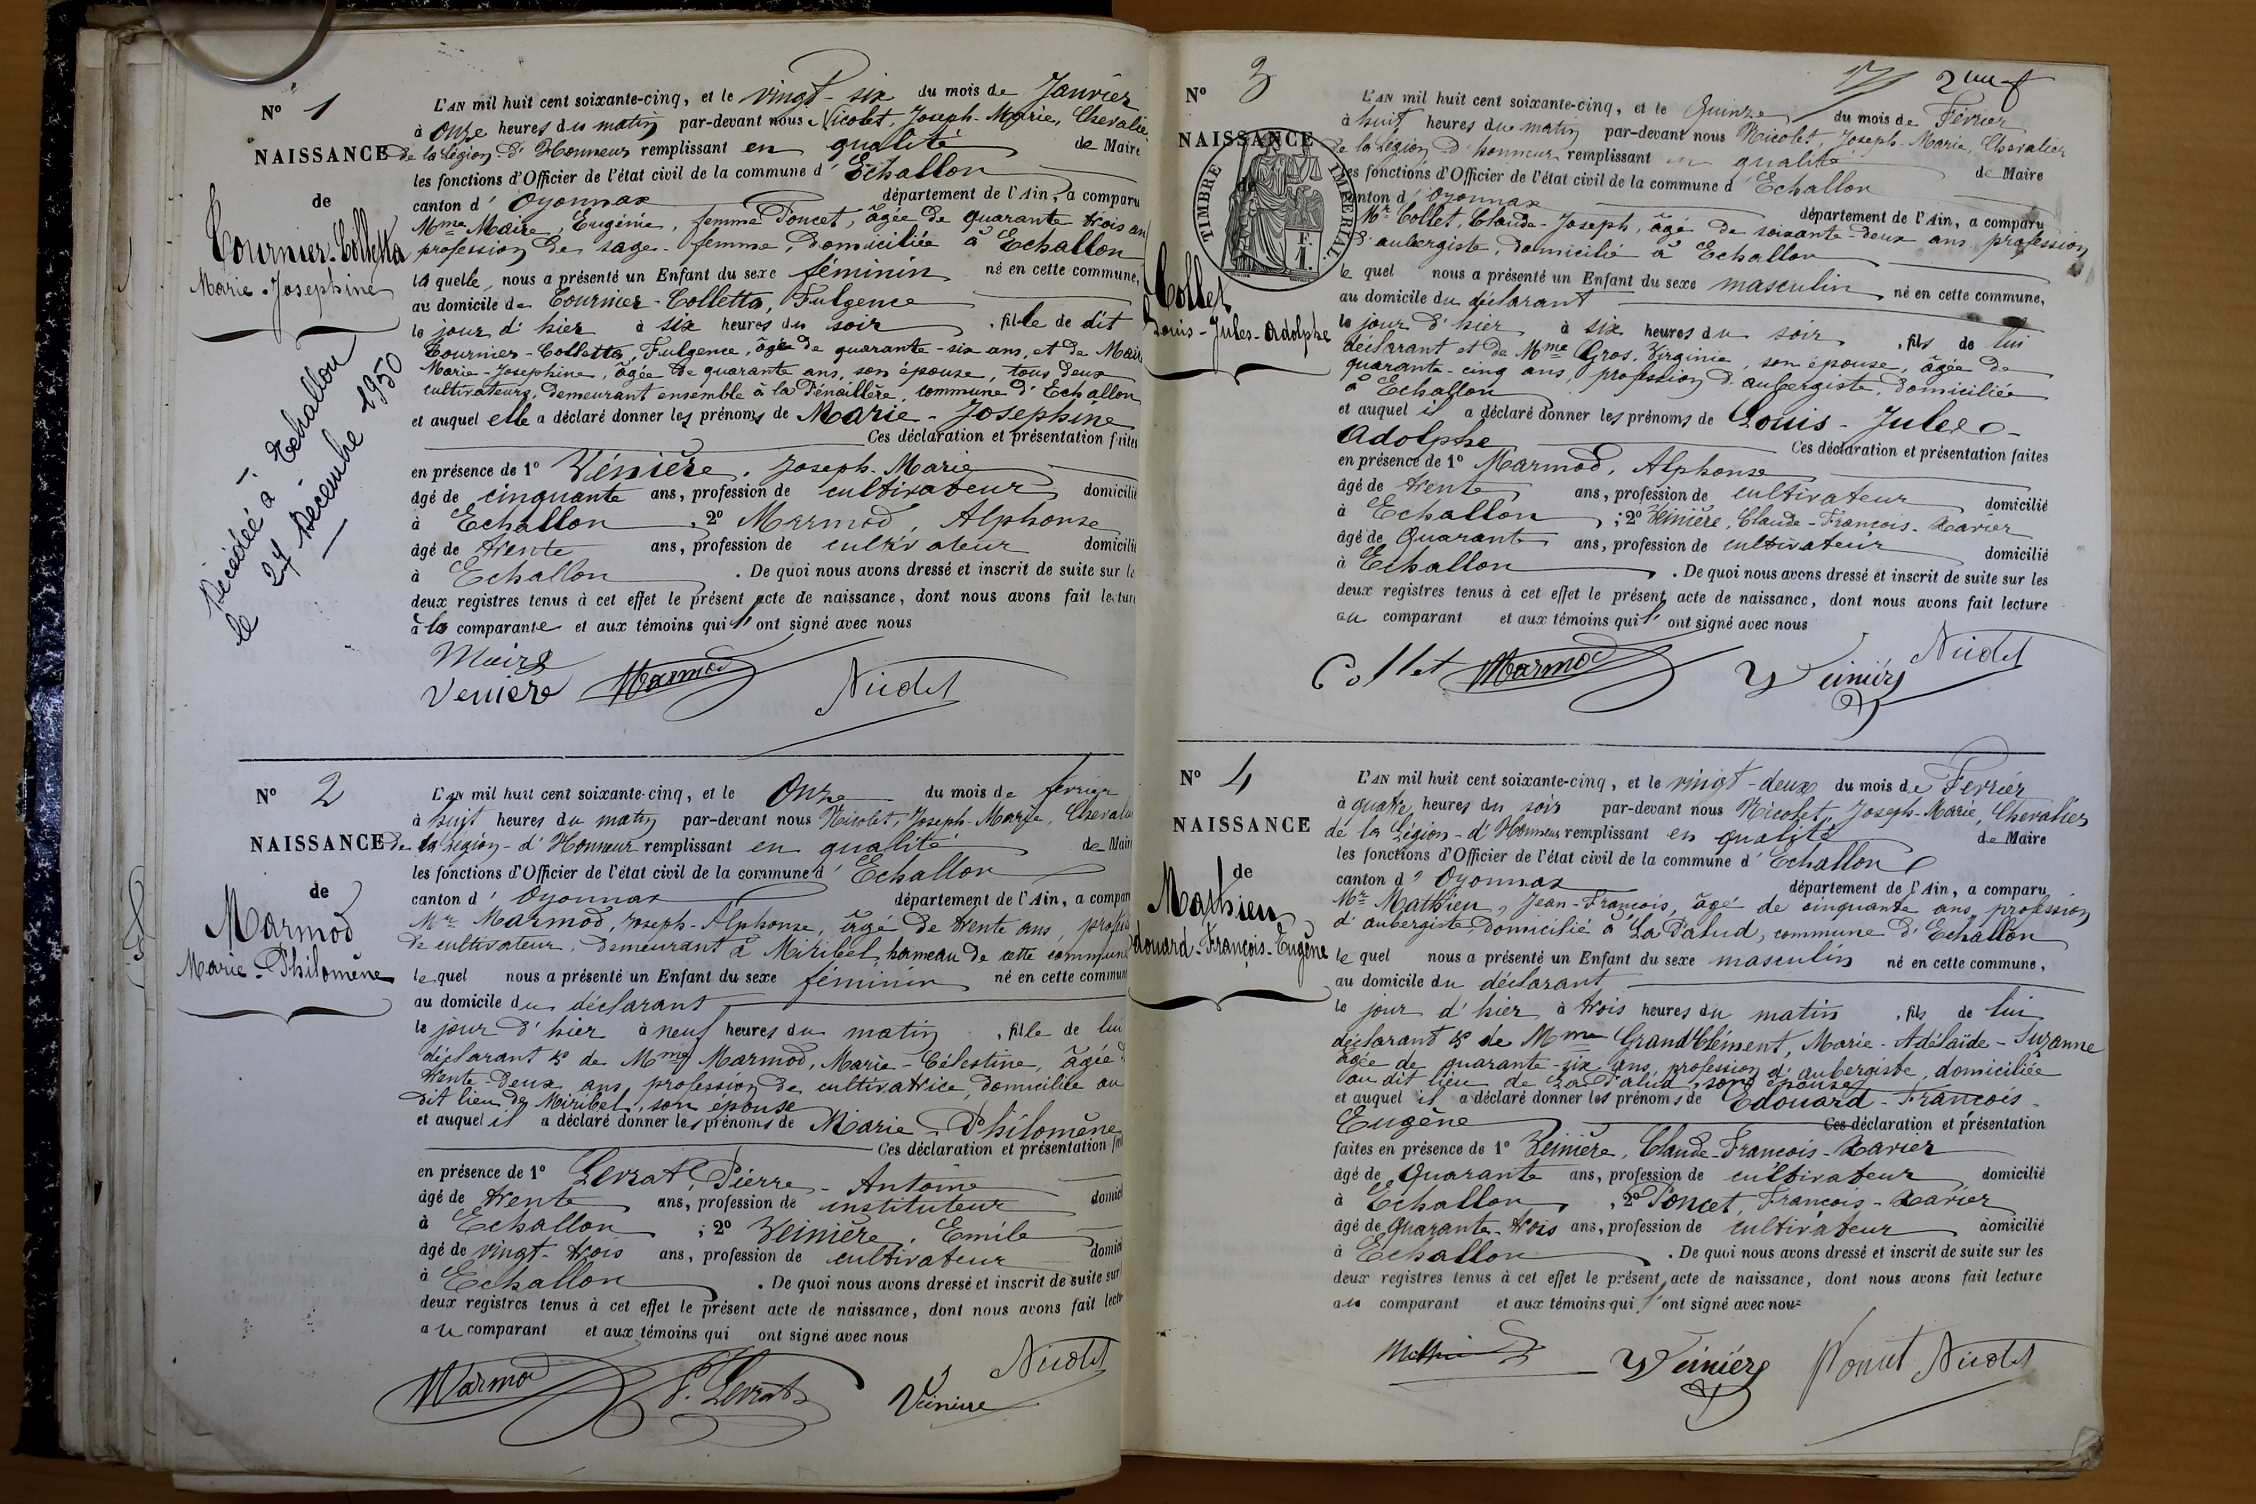 N° 1
NAISSANCE
de
Tournier-Colletta
Marie-Josephine
Décédée à Echallon
le 27 Décembre 1950
L'AN mil huit cent soixante-cinq, et le vingt-six du mois de Janvier
à onze heures du matin par-devant nous Nicolet, Joseph-Marie, Chevalier
de la Légion-d'Honneur remplissant en qualité de Maire
les fonctions d'Officier de l'état civil de la commune d'Echallon
canton d'Oyonnax département de l'Ain, a comparu
Mme Maire, Eugénie, femme Poncet, âgée de quarante trois an
profession de sage-femme, domiciliée à Echallon
la quelle, nous a présenté un Enfant du sexe féminin né en cette commune,
au domicile de Tournier-Colletta, Fulgence
le jour d'hier à six heures du soir, fille de dit
Tournier-Colletta, Fulgence, âgé de quarante-six ans, et de Maire
Marie-Josephine, âgée de quarante ans, son épouse, tous deux
cultivateurs, demeurant ensemble à la Pénaillère, commune d'Echallon
et auquel elle a déclaré donner les prénoms de Marie-Josephine
Ces déclaration et présentation faites
en présence de 1° Vénière, Joseph-Marie
âgé de cinquante ans, profession de cultivateur domicilié
à Echallon, 2° Marmod, Alphonse
âgé de trente ans, profession de cultivateur domicilié
à Echallon. De quoi nous avons dressé et inscrit de suite sur le
deux registres tenus à cet effet le présent acte de naissance, dont nous avons fait lecture
à la comparante et aux témoins qui l'ont signé avec nous
Maire
Veniere Marmod Nicolet
N° 2
NAISSANCE
de
Marmod
Marie-Philomène
L'AN mil huit cent soixante-cinq, et le onze du mois de février
à huit heures du matin par-devant nous Nicolet, Joseph-Marie, Chevalier
de la Légion-d'Honneur remplissant en qualité de Maire
les fonctions d'Officier de l'état civil de la commune d'Echallon
canton d'Oyonnax département de l'Ain, a comparu
Mr Marmod, Joseph-Alphonse, âgé de trente ans, profession
de cultivateur, demeurant à Miribel, hameau de cette commune
le quel nous a présenté un Enfant du sexe féminin né en cette commune
au domicile du déclarant
le jour d'hier à neuf heures du matin, fille de lui
déclarant & de Mme Marmod, Marie-Célestine, âgée d
trente-deux ans, profession de cultivatrice, domiciliée au
dit lieu de Miribel, son épouse
et auquel il a déclaré donner les prénoms de Marie-Philomène
Ces déclaration et présentation fai
en présence de 1° Levrat, Pierre-Antoine
âgé de trente ans, profession de instituteur domici
à Echallon; 2° Veinière, Emile
âgé de vingt-trois ans, profession de cultivateur domici
à Echallon. De quoi nous avons dressé et inscrit de suite sur
deux registres tenus à cet effet le présent acte de naissance, dont nous avons fait lectu
au comparant et aux témoins qui ont signé avec nous
Marmod P. Levrat Veiniere Nicolet
2me f
N° 3
NAISSANCE
de
TIMBRE IMPÉRIAL.
F.
1.
Collet
Louis-Jules-Adolphe
L'AN mil huit cent soixante-cinq, et le Quinze du mois de Février
à huit heures du matin par-devant nous Nicolet, Joseph-Marie, Chevalier
de la Légion-d'honneur remplissant en qualité de Maire
les fonctions d'Officier de l'état civil de la commune d'Echallon
canton d'Oyonnax département de l'Ain, a comparu
Mr Collet, Claude-Joseph, âgé de soixante-deux ans, profession
d'aubergiste, domicilié à Echallon
le quel nous a présenté un Enfant du sexe masculin né en cette commune,
au domicile du déclarant
le jour d'hier à six heures du soir, fils de lui
déclarant et de Mme Gros, Virginie, son épouse, âgée de
quarante-cinq ans, profession d'aubergiste, domiciliée
à Echallon
et auquel il a déclaré donner les prénoms de Louis-Jules-
Adolphe Ces déclaration et présentation faites
en présence de 1° Marmod, Alphonse
âgé de trente ans, profession de cultivateur domicilié
à Echallon; 2° Veinière, Claude-François-Xavier
âgé de Quarante ans, profession de cultivateur domicilié
à Echallon. De quoi nous avons dressé et inscrit de suite sur les
deux registres tenus à cet effet le présent acte de naissance, dont nous avons fait lecture
au comparant et aux témoins qui l'ont signé avec nous
Collet Marmod Veiniere Nicolet
N° 4
NAISSANCE
de
Mathieu
Edouard-François-Eugène
L'AN mil huit cent soixante-cinq, et le vingt-deux du mois de Février
à quatre heures du soir par-devant nous Nicolet, Joseph-Marie, Chevalier
de la Légion-d'Honneur remplissant en qualité de Maire
les fonctions d'Officier de l'état civil de la commune d'Echallon
canton d'Oyonnax département de l'Ain, a comparu
Mr Mathieu, Jean-François, âgé de cinquante ans, profession
d'aubergiste domicilié à La Palud, commune d'Echallon
le quel nous a présenté un Enfant du sexe masculin né en cette commune,
au domicile du déclarant
le jour d'hier à trois heures du matin, fils de lui
déclarant & de Mme Grandclément, Marie-Adélaïde-Suzanne
âgée de quarante-six ans, profession d'aubergiste, domiciliée
au dit lieu de La Palud, son épouse
et auquel il a déclaré donner les prénoms de Edouard-François-
Eugène Ces déclaration et présentation
faites en présence de 1° Veinière, Claude-François-Xavier
âgé de Quarante ans, profession de cultivateur domicilié
à Echallon, 2° Poncet, François-Xavier
âgé de Quarante-trois ans, profession de cultivateur domicilié
à Echallon. De quoi nous avons dressé et inscrit de suite sur les
deux registres tenus à cet effet le présent acte de naissance, dont nous avons fait lecture
au comparant et aux témoins qui l'ont signé avec nous
Mathieu Veiniere Poncet Nicolet